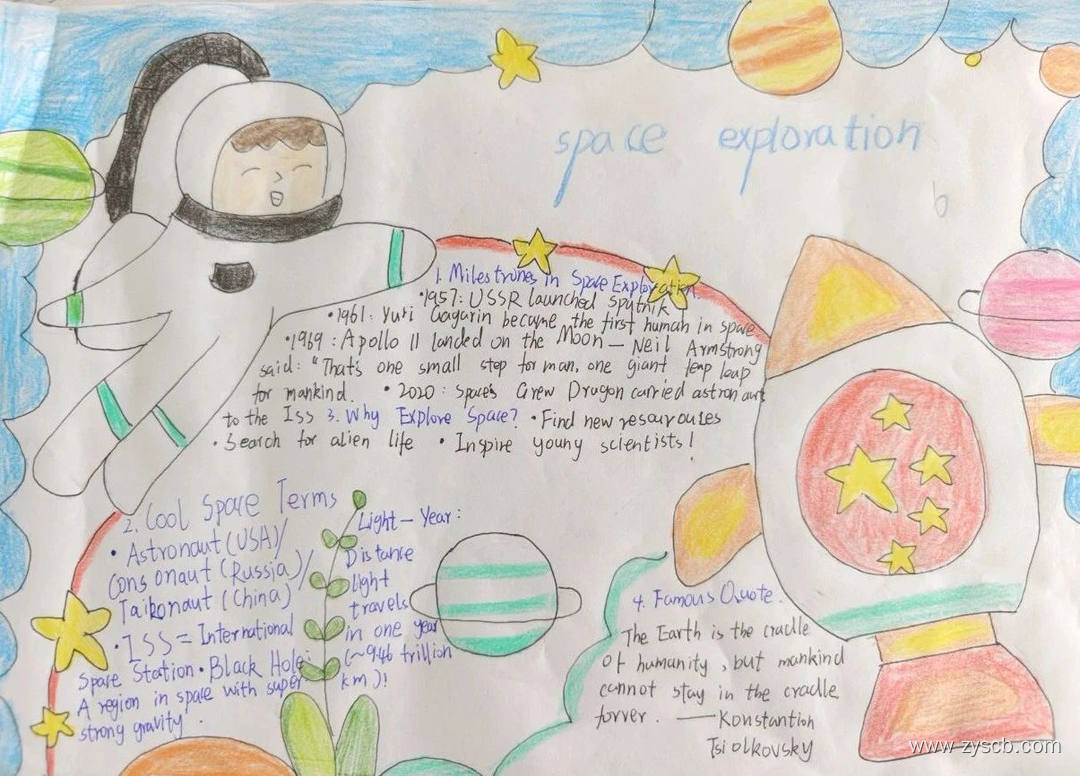 space exploration
b
1. Milestrunes in Space Exploration
•1957: USSR launched sputnik
•1961: Yuri Gagarin became the first human in space
•1969: Apollo 11 landed on the Moon — Neil Armstrong
said: "That's one small step for man, one giant leap leap
for mankind. • 2020: spaceś Crew Dragon carried astronauts
to the Iss 3. Why Explore Space? • Find new resouroutes
• Search for alien life • Inspire young scientists!
2. Cool Space Terms
• Astronaut (USA)/
Consonaut (Russia)/
Taikonaut (China)
• ISS = International
Space Station • Black Hole:
A region in space with super
strong gravity.
Light-Year:
Distance
light
travels
in one year
(~9.46 trillion
km)!
4. Famous Quote.
The Earth is the cradle
of humanity, but mankind
cannot stay in the cradle
forver. — Konstantion
Tsiolkovsky
www.zyscb.com